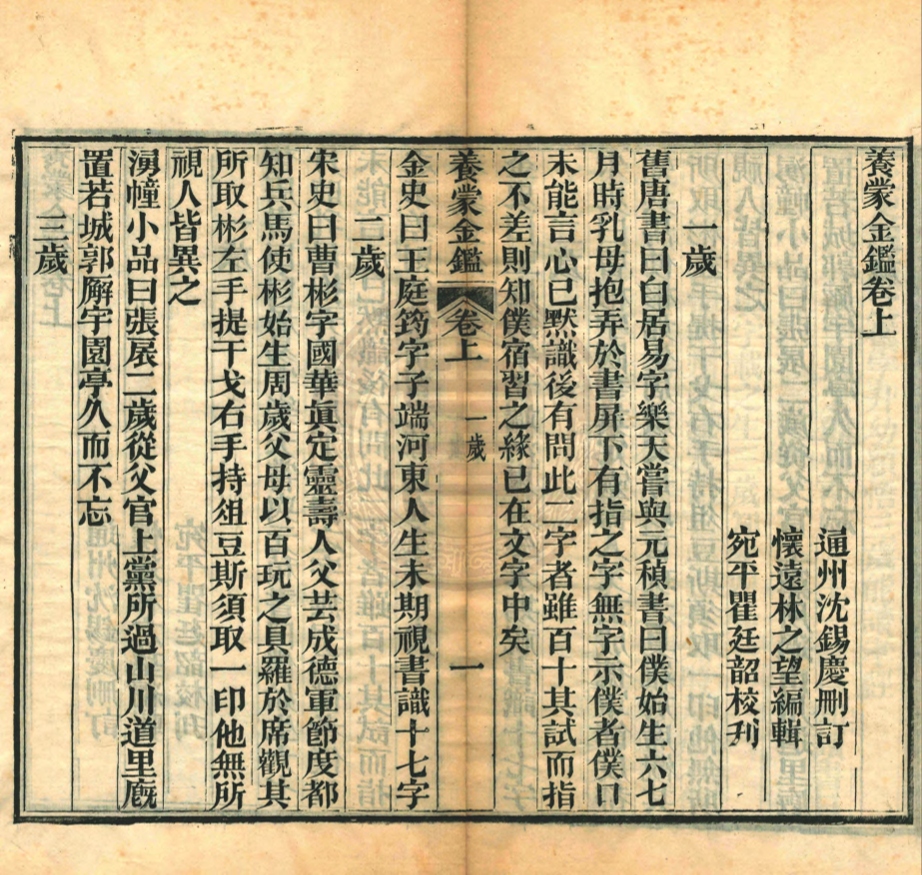 養蒙金鑑卷上
通州沈錫慶刪訂
懷遠林之望編輯
宛平瞿廷韶校刋
一歲
舊唐書曰白居易字樂天嘗與元稹書曰僕始生六七
月時乳母抱弄於書屏下有指之字無字示僕者僕口
未能言心已默識後有問此二字者雖百十其試而指
之不差則知僕宿習之緣已在文字中矣
養蒙金鑑
卷上
一歲
一
金史曰王庭筠字子端河東人生未期視書識十七字
二歲
宋史曰曹彬字國華眞定靈壽人父芸成德軍節度都
知兵馬使彬始生周歲父母以百玩之具羅於席觀其
所取彬左手提干戈右手持俎豆斯須取一印他無所
視人皆異之
湧幢小品曰張扆二歲從父官上黨所過山川道里廐
置若城郭廨宇園亭久而不忘
三歲